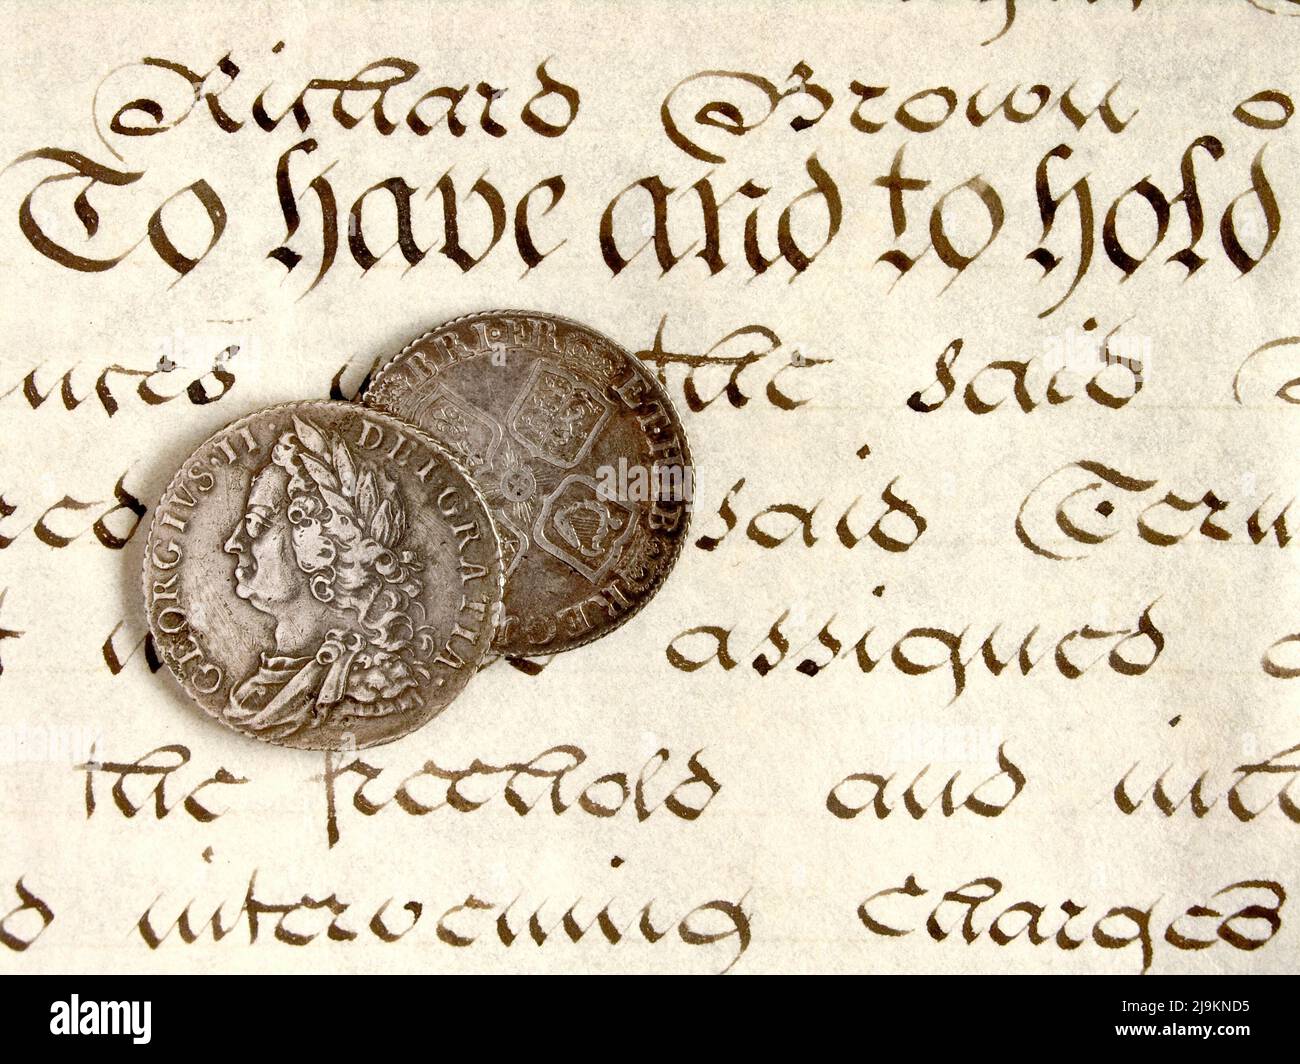 Richard Brown
To have and to hold
the said
said Term
assigned
the freehold and
intervening Charges
GEORGIVS·II· DEI·GRATIA·
BRI·FR ET·HIB REX
alamy
Image ID: 2J9KND5
www.alamy.com